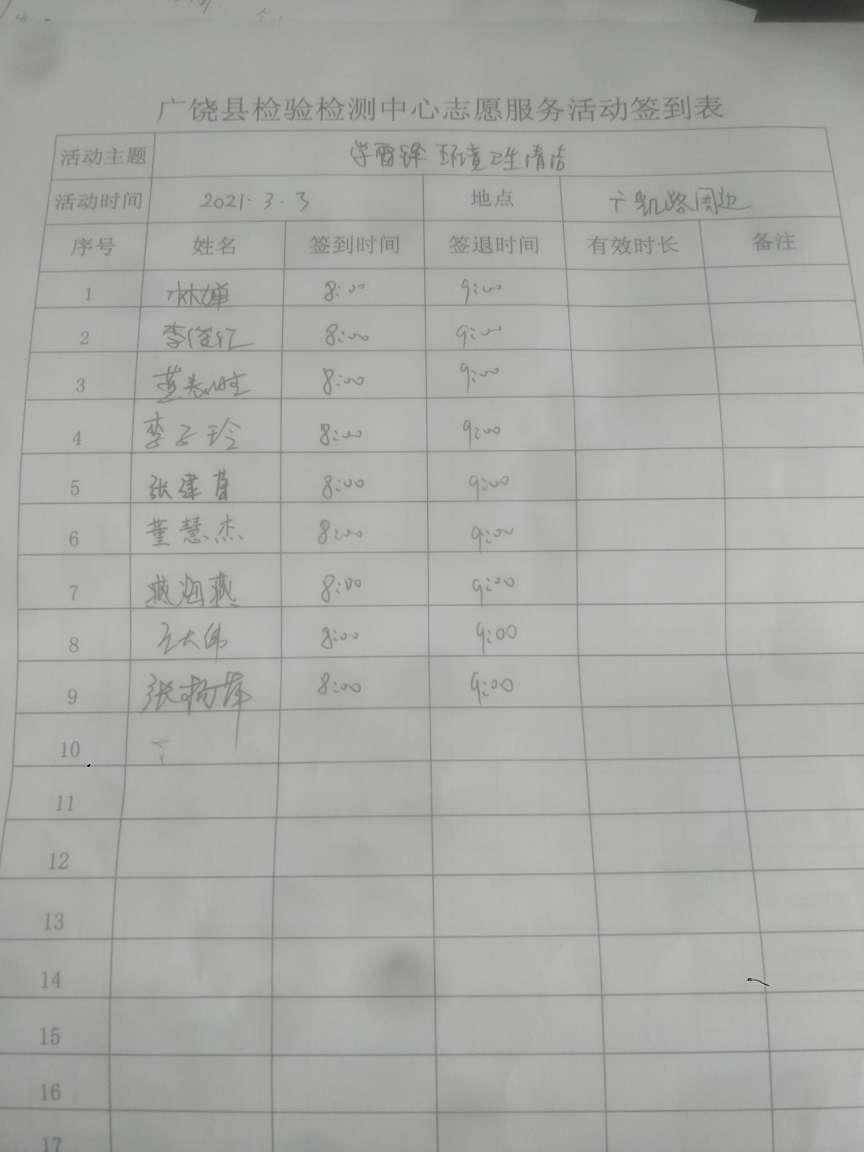 广饶县检验检测中心志愿服务活动签到表
活动主题 学雷锋 环境卫生清洁
活动时间 2021.3.3 地点 广凯路周边
序号 姓名 签到时间 签退时间 有效时长 备注
1 林婵 8:00 9:00
2 李俊汇 8:00 9:00
3 8:00 9:00
4 李子玲 8:00 9:00
5 张建 8:00 9:00
6 董慧杰 8:00 9:00
7 燕海燕 8:00 9:00
8 王大伟 8:00 9:00
9 张 8:00 9:00
10
11
12
13
14
15
16
17